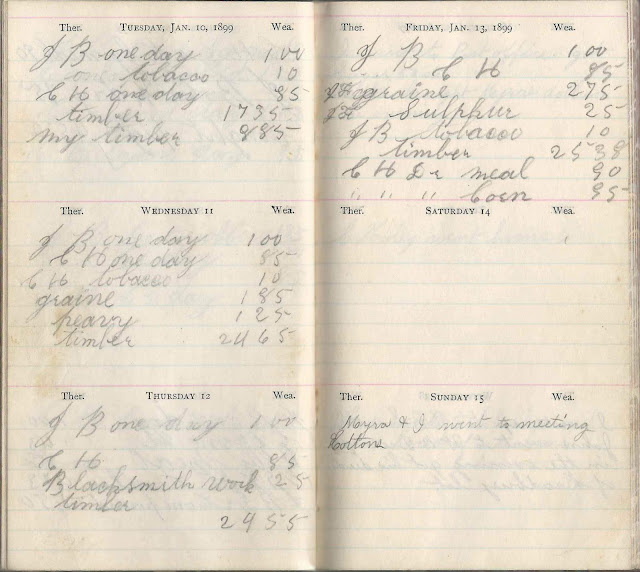 Ther. TUESDAY, JAN. 10, 1899 Wea.
J B one day 1 00
one tobacco 10
C H one day 85
timber 17 35
my timber 9 85
Ther. WEDNESDAY 11 Wea.
J B one day 1 00
C H one day 85
C H tobacco 10
graine 1 85
peavy 1 25
timber 24 65
Ther. THURSDAY 12 Wea.
J B one day 1 00
C H 85
Blacksmith work 25
timber
24 55
Ther. FRIDAY, JAN. 13, 1899 Wea.
J B 1,00
C H 85
graine 2 75
Sulphur 25
J B tobacco 10
timber 25 38
C H Dr meal 90
" " " Coen 95
Ther. SATURDAY 14 Wea.
Ther. SUNDAY 15 Wea.
Myra & I went to meeting
Cottons